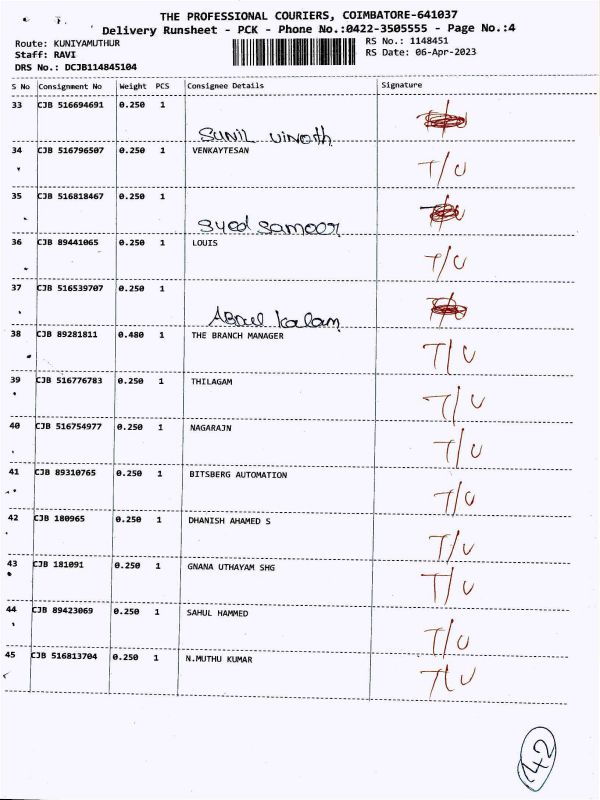 THE PROFESSIONAL COURIERS, COIMBATORE-641037
Delivery Runsheet - PCK - Phone No.:0422-3505555 - Page No.:4
Route: KUNIYAMUTHUR RS No.: 1148451
Staff: RAVI RS Date: 06-Apr-2023
DRS No.: DCJB114845104
S No Consignment No Weight PCS Consignee Details Signature
33 CJB 516694691 0.250 1
Sunil Vinoth
34 CJB 516796507 0.250 1 VENKAYTESAN T/U
35 CJB 516818467 0.250 1
Syed Sameer
36 CJB 89441065 0.250 1 LOUIS T/U
37 CJB 516539707 0.250 1
Abdul Kalam
38 CJB 89281811 0.480 1 THE BRANCH MANAGER T/U
39 CJB 516776783 0.250 1 THILAGAM T/U
40 CJB 516754977 0.250 1 NAGARAJN T/U
41 CJB 89310765 0.250 1 BITSBERG AUTOMATION T/U
42 CJB 180965 0.250 1 DHANISH AHAMED S T/U
43 CJB 181091 0.250 1 GNANA UTHAYAM SHG T/U
44 CJB 89423069 0.250 1 SAHUL HAMMED T/U
45 CJB 516813704 0.250 1 N.MUTHU KUMAR T/U
42